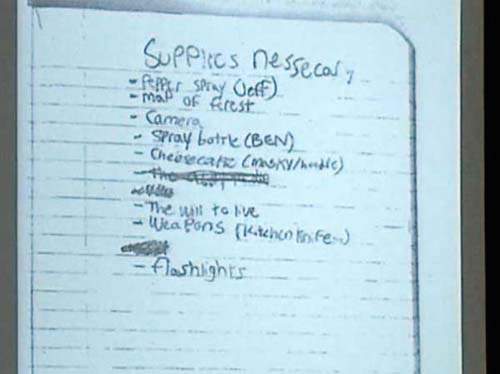 Supplies nessecary
- Pepper spray (Jeff)
- map of forest
- Camera
- Spray bottle (BEN)
- Cheesecake (masky/hoodie)
- The
- The will to live
- Weapons (kitchen knife...)
- flashlights